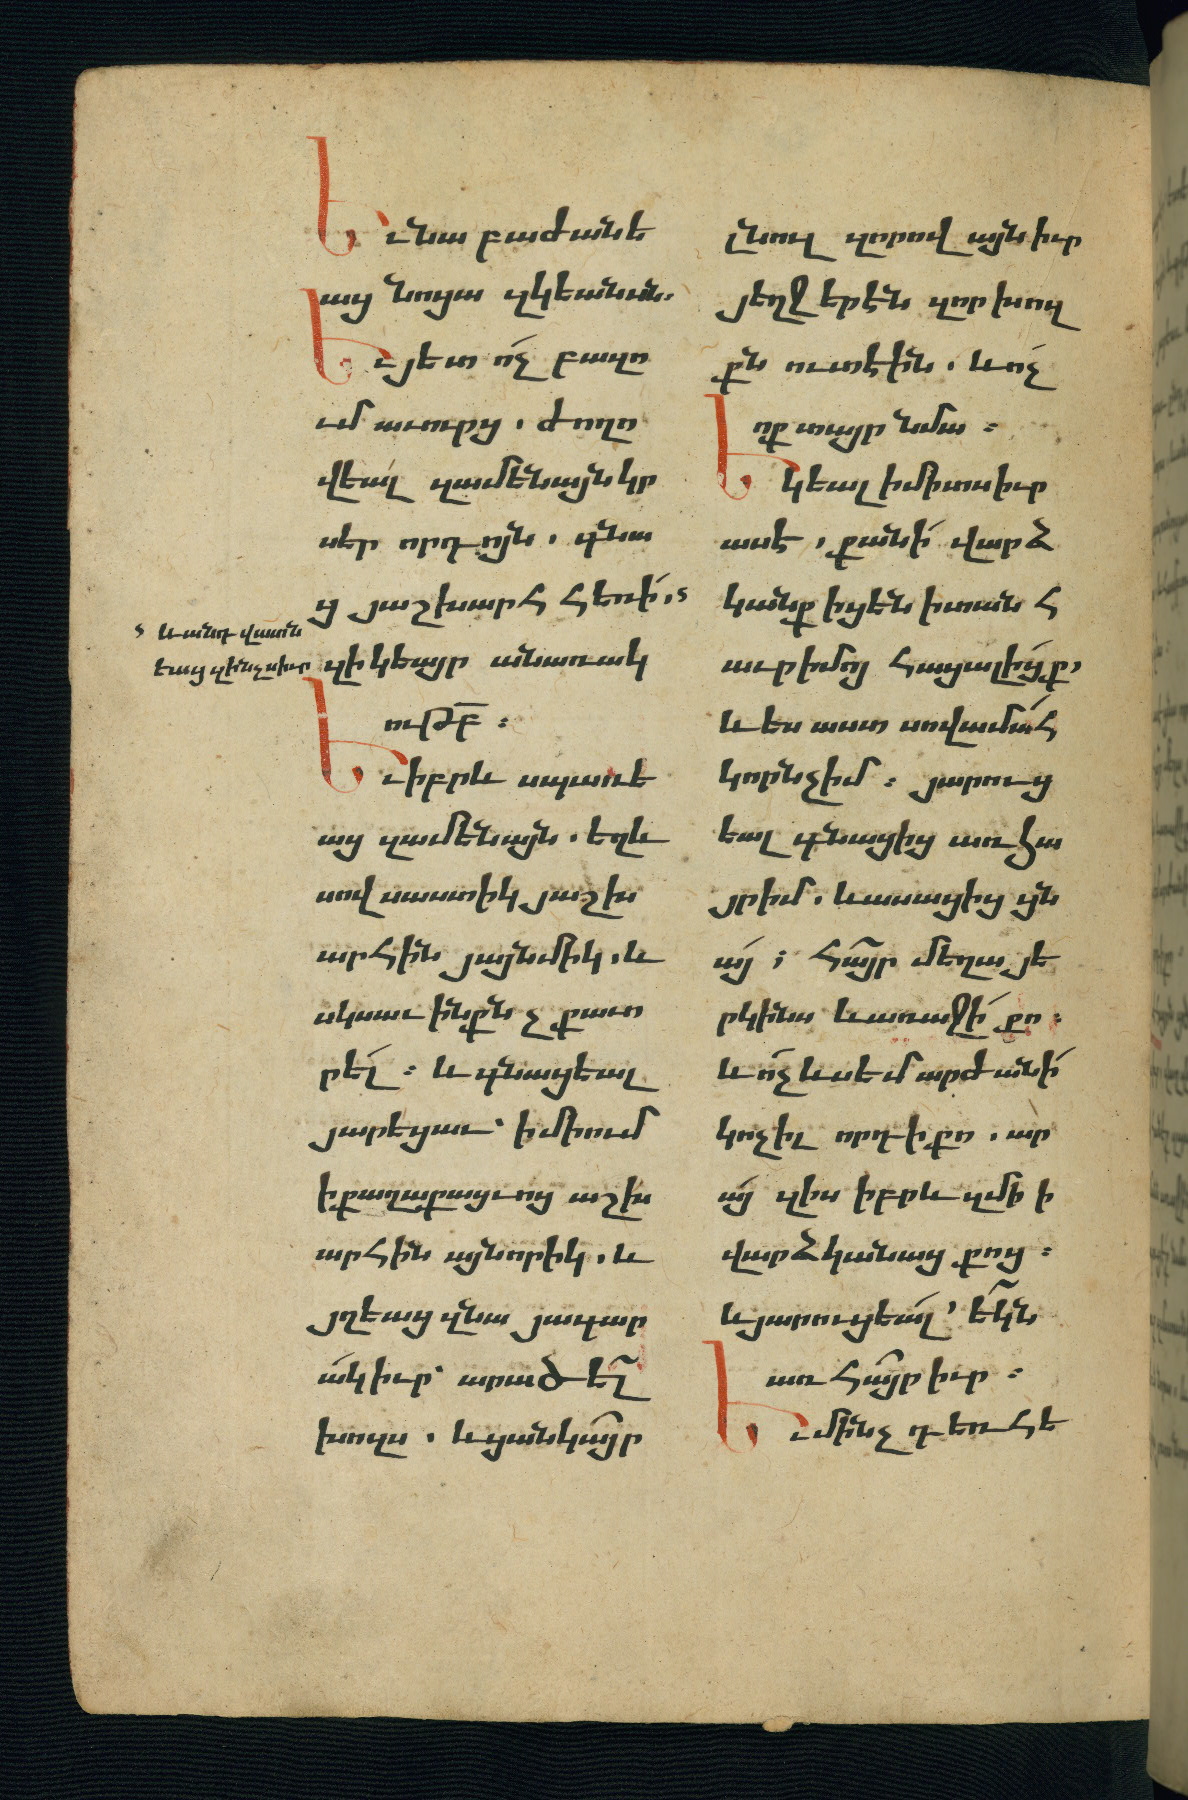 Եւ նա բաժանե
աց նոցա զկեանսն.
Եւ յետ ոչ բազո
ւմ աւուրց. ժողո
վեալ զամենայն կր
սեր որդոյն. գնա
ց յաշխարհ հեռի.
և անդ վատն
եաց զինչսիւր
զի կեայր անառակ
ութբ :
Եւ իբրև սպառե
աց զամենայն. եղև
սով սաստիկ յաշխ
արհին յայնմիկ. և
սկսաւ ինքն չքաւո
րել : և գնացեալ
յարեցաւ՝ ի միում
ի քաղաքացւոց աշխ
արհին այնորիկ. և
յղեաց զնա յագար
ակ իւր՝ արածել
խոզս. և ցանկայր
լնուլ զորով այն իւր
յեղջերէն զոր խոզ
քն ուտէին. և ոչ
ոք տայր նմա :
Եկեալ ի միտս իւր
ասէ, քանի վարձ
կանք իցեն ի տան հ
աւր իմոյ հացալիցք,
և ես աստ սովամահ
կորնչիմ : յարուց
եալ գնացից առ հա
յր իմ. և ասացից ցն
ա : հայր մեղա յե
րկինս և առաջի քո :
և ոչ ևս եմ արժանի
կոչիլ որդի քո. ար
ա զիս իբրև զմի ի
վարձկանաց քոց :
և յարուցեալ՝ եկն
առ հայր իւր :
Եւ մինչդեռ հե